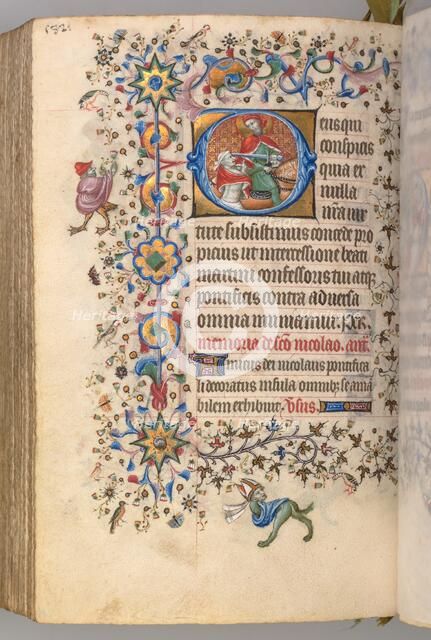 Deus qui
conspicis
quia ex
nulla
n̄ra uir
tute subsistimus concede pro
picius ut intercessione beati
martini confessoris tui atq;
pontificis contra aduersa
omnia muniamur. P̄er.
memoria de sc̄o nicolao. an̄t.
Amicus dei nicolaus pontifica
li decoratus infula omnibȝ se ama
bilem exhibuit. V̄sus.
Heritage